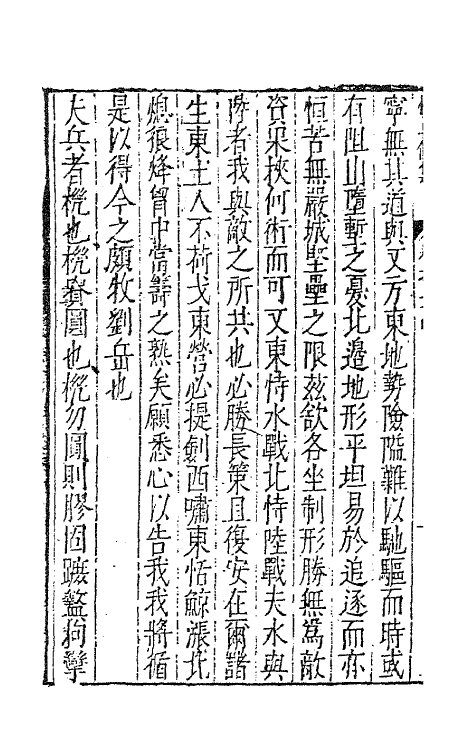 寧無其道與又方東地勢險隘難以馳驅而時或
有阻山墮塹之憂北邉地形平坦易於追逐而亦
恒苦無嚴城堅壘之限兹欲各坐制形勝無爲敵
資采挾何術而可又東恃水戰北恃陸戰夫水與
陸者我與敵之所共也必勝長策且復安在爾諸
生東主人不荷戈東營必提劍西嘯東恬鯨漲北
熄狼烽胷中當籌之熟矣願悉心以告我我將循
是以得今之頗牧劉岳也
夫兵者機也機發圓也機勿圓則膠固蹶盭拘攣